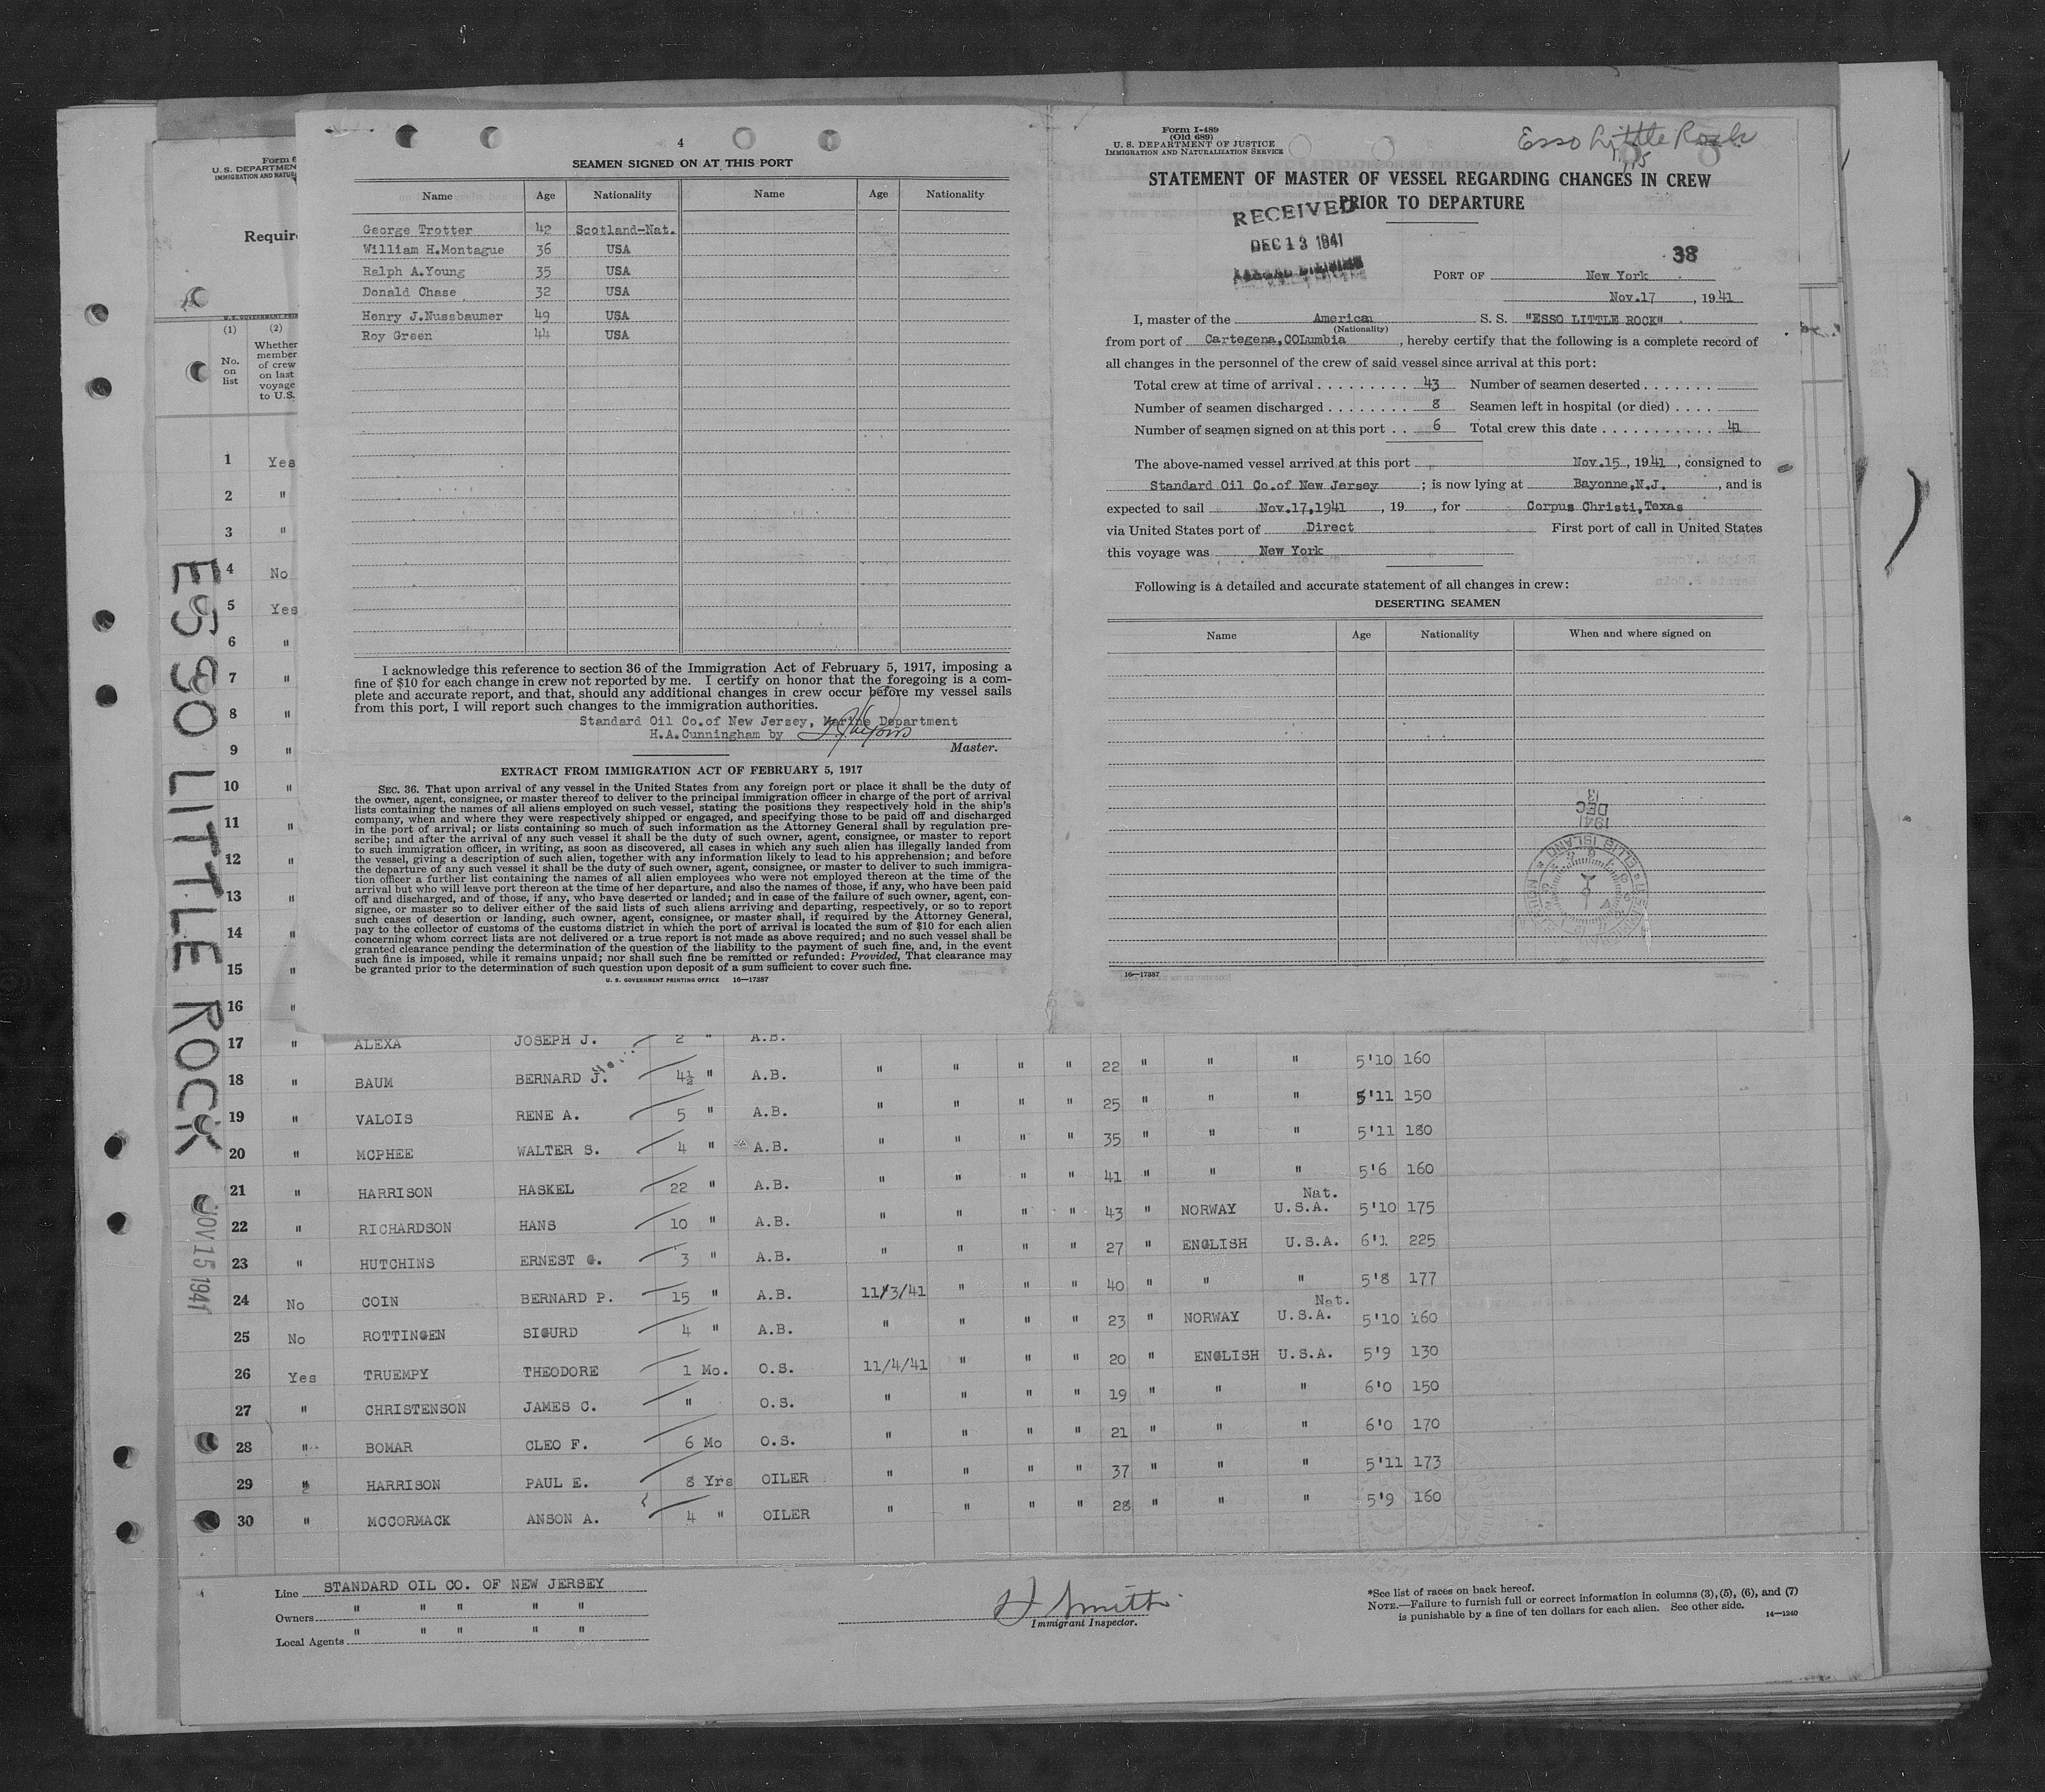 4
SEAMEN SIGNED ON AT THIS PORT
Name Age Nationality Name Age Nationality
George Trotter 42 Scotland-Nat.
William H.Montague 36 USA
Ralph A.Young 35 USA
Donald Chase 32 USA
Henry J.Nussbaumer 49 USA
Roy Green 44 USA
I acknowledge this reference to section 36 of the Immigration Act of February 5, 1917, imposing a
fine of $10 for each change in crew not reported by me. I certify on honor that the foregoing is a com-
plete and accurate report, and that, should any additional changes in crew occur before my vessel sails
from this port, I will report such changes to the immigration authorities.
Standard Oil Co.of New Jersey, Marine Department
H.A.Cunningham by
Master.
EXTRACT FROM IMMIGRATION ACT OF FEBRUARY 5, 1917
SEC. 36. That upon arrival of any vessel in the United States from any foreign port or place it shall be the duty of
the owner, agent, consignee, or master thereof to deliver to the principal immigration officer in charge of the port of arrival
lists containing the names of all aliens employed on such vessel, stating the positions they respectively hold in the ship's
company, when and where they were respectively shipped or engaged, and specifying those to be paid off and discharged
in the port of arrival; or lists containing so much of such information as the Attorney General shall by regulation pre-
scribe; and after the arrival of any such vessel it shall be the duty of such owner, agent, consignee, or master to report
to such immigration officer, in writing, as soon as discovered, all cases in which any such alien has illegally landed from
the vessel, giving a description of such alien, together with any information likely to lead to his apprehension; and before
the departure of any such vessel it shall be the duty of such owner, agent, consignee, or master to deliver to such immigra-
tion officer a further list containing the names of all alien employees who were not employed thereon at the time of the
arrival but who will leave port thereon at the time of her departure, and also the names of those, if any, who have been paid
off and discharged, and of those, if any, who have deserted or landed; and in case of the failure of such owner, agent, con-
signee, or master so to deliver either of the said lists of such aliens arriving and departing, respectively, or so to report
such cases of desertion or landing, such owner, agent, consignee, or master shall, if required by the Attorney General,
pay to the collector of customs of the customs district in which the port of arrival is located the sum of $10 for each alien
concerning whom correct lists are not delivered or a true report is not made as above required; and no such vessel shall be
granted clearance pending the determination of the question of the liability to the payment of such fine, and, in the event
such fine is imposed, while it remains unpaid; nor shall such fine be remitted or refunded: Provided, That clearance may
be granted prior to the determination of such question upon deposit of a sum sufficient to cover such fine.
U. S. GOVERNMENT PRINTING OFFICE 16—17387
Form I-489
(Old 689)
U. S. DEPARTMENT OF JUSTICE
IMMIGRATION AND NATURALIZATION SERVICE
Esso Little Rock
11/15
STATEMENT OF MASTER OF VESSEL REGARDING CHANGES IN CREW
PRIOR TO DEPARTURE
RECEIVED
DEC 13 1941
38
PORT OF New York
Nov.17, 1941
I, master of the American S. S. "ESSO LITTLE ROCK"
(Nationality)
from port of Cartegena,COLumbia, hereby certify that the following is a complete record of
all changes in the personnel of the crew of said vessel since arrival at this port:
Total crew at time of arrival 43 Number of seamen deserted
Number of seamen discharged 8 Seamen left in hospital (or died)
Number of seamen signed on at this port 6 Total crew this date 41
The above-named vessel arrived at this port Nov.15, 1941, consigned to
Standard Oil Co.of New Jersey; is now lying at Bayonne,N.J., and is
expected to sail Nov.17,1941, 19 , for Corpus Christi,Texas
via United States port of Direct First port of call in United States
this voyage was New York
Following is a detailed and accurate statement of all changes in crew:
DESERTING SEAMEN
Name Age Nationality When and where signed on
DEC 13 1941
ELLIS ISLAND
16—17387
Form 6
U. S. DEPARTMEN
IMMIGRATION AND NATU
Requir
(1) (2)
No. on list
Whether member of crew on last voyage to U.S.
ESSO LITTLE ROCK
NOV 15 1941
1 Yes
2 "
3 "
4 No
5 Yes
6 "
7 "
8 "
9 "
10 "
11 "
12 "
13 "
14 "
15 "
16 "
17 " ALEXA JOSEPH J. 2 " A.B.
18 " BAUM BERNARD J. 4½ " A.B. " " " " 22 " " " 5'10 160
19 " VALOIS RENE A. 5 " A.B. " " " " 25 " " " 5'11 150
20 " MCPHEE WALTER S. 4 " A.B. " " " " 35 " " " 5'11 180
21 " HARRISON HASKEL 22 " A.B. " " " " 41 " " " 5'6 160
22 " RICHARDSON HANS 10 " A.B. " " " " 43 " NORWAY Nat. U.S.A. 5'10 175
23 " HUTCHINS ERNEST G. 3 " A.B. " " " " 27 " ENGLISH U.S.A. 6'1 225
24 No COIN BERNARD P. 15 " A.B. 11/3/41 " " " 40 " " " 5'8 177
25 No ROTTINGEN SIGURD 4 " A.B. " " " " 23 " NORWAY Nat. U.S.A. 5'10 160
26 Yes TRUEMPY THEODORE 1 Mo. O.S. 11/4/41 " " " 20 " ENGLISH U.S.A. 5'9 130
27 " CHRISTENSON JAMES C. " O.S. " " " " 19 " " " 6'0 150
28 " BOMAR CLEO F. 6 Mo O.S. " " " " 21 " " " 6'0 170
29 " HARRISON PAUL E. 8 Yrs OILER " " " " 37 " " " 5'11 173
30 " MCCORMACK ANSON A. 4 " OILER " " " " 28 " " " 5'9 160
Line STANDARD OIL CO. OF NEW JERSEY
Owners " " " " "
Local Agents " " " " "
Smith
Immigrant Inspector.
*See list of races on back hereof.
NOTE.—Failure to furnish full or correct information in columns (3), (5), (6), and (7)
is punishable by a fine of ten dollars for each alien. See other side.
14—1240